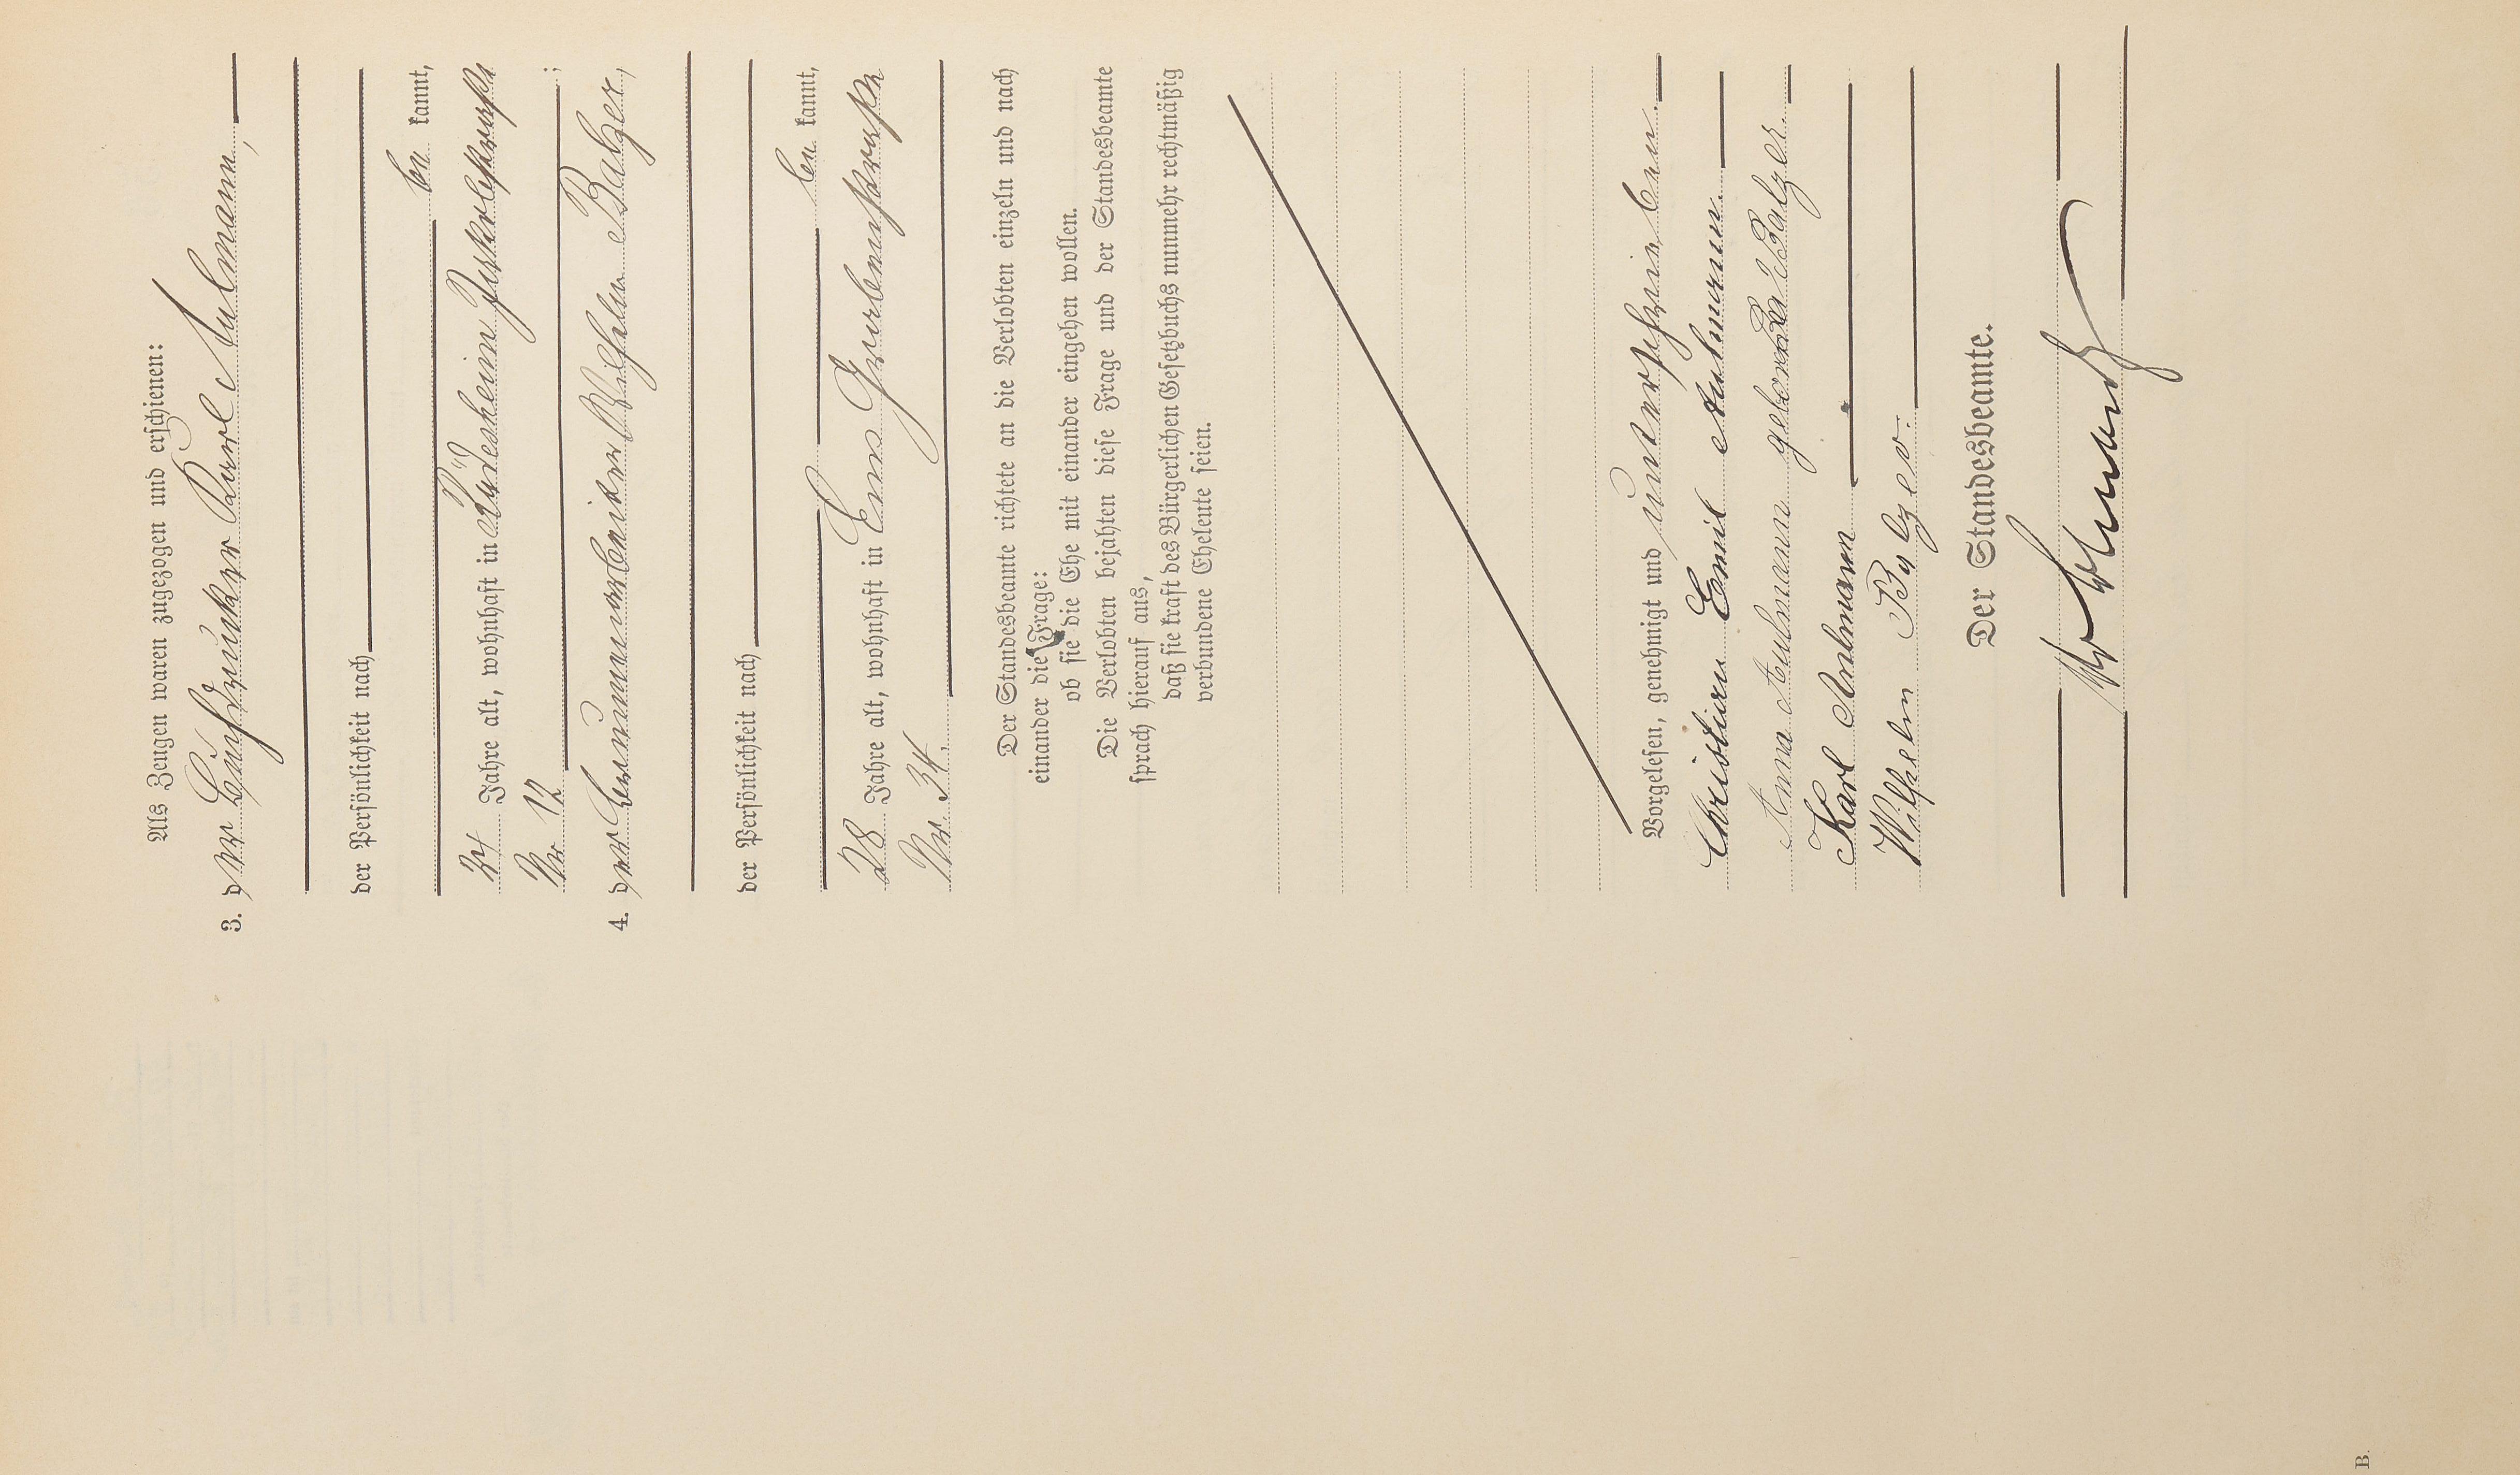 Als Zeugen waren zugezogen und erschienen:
3. der Buchdrucker Karl Aulmann,
der Persönlichkeit nach
be kannt,
24 Jahre alt, wohnhaft in Rüdesheim
Nr 12 ;
4. der Brunnenarbeiter Wilhelm Balzer,
der Persönlichkeit nach
be kannt,
28 Jahre alt, wohnhaft in Ems Grabenstraße
Nr. 34.
Der Standesbeamte richtete an die Verlobten einzeln und nach
einander die Frage:
ob sie die Ehe mit einander eingehen wollen.
Die Verlobten bejahten diese Frage und der Standesbeamte
sprach hierauf aus,
daß sie kraft des Bürgerlichen Gesetzbuchs nunmehr rechtmäßig
verbundene Eheleute seien.
Vorgelesen, genehmigt und unterschrieben.
Christian Emil Aulmann.
Anna Aulmann geborene Balzer.
Karl Aulmann
Wilhelm Balzer.
Der Standesbeamte.
B.